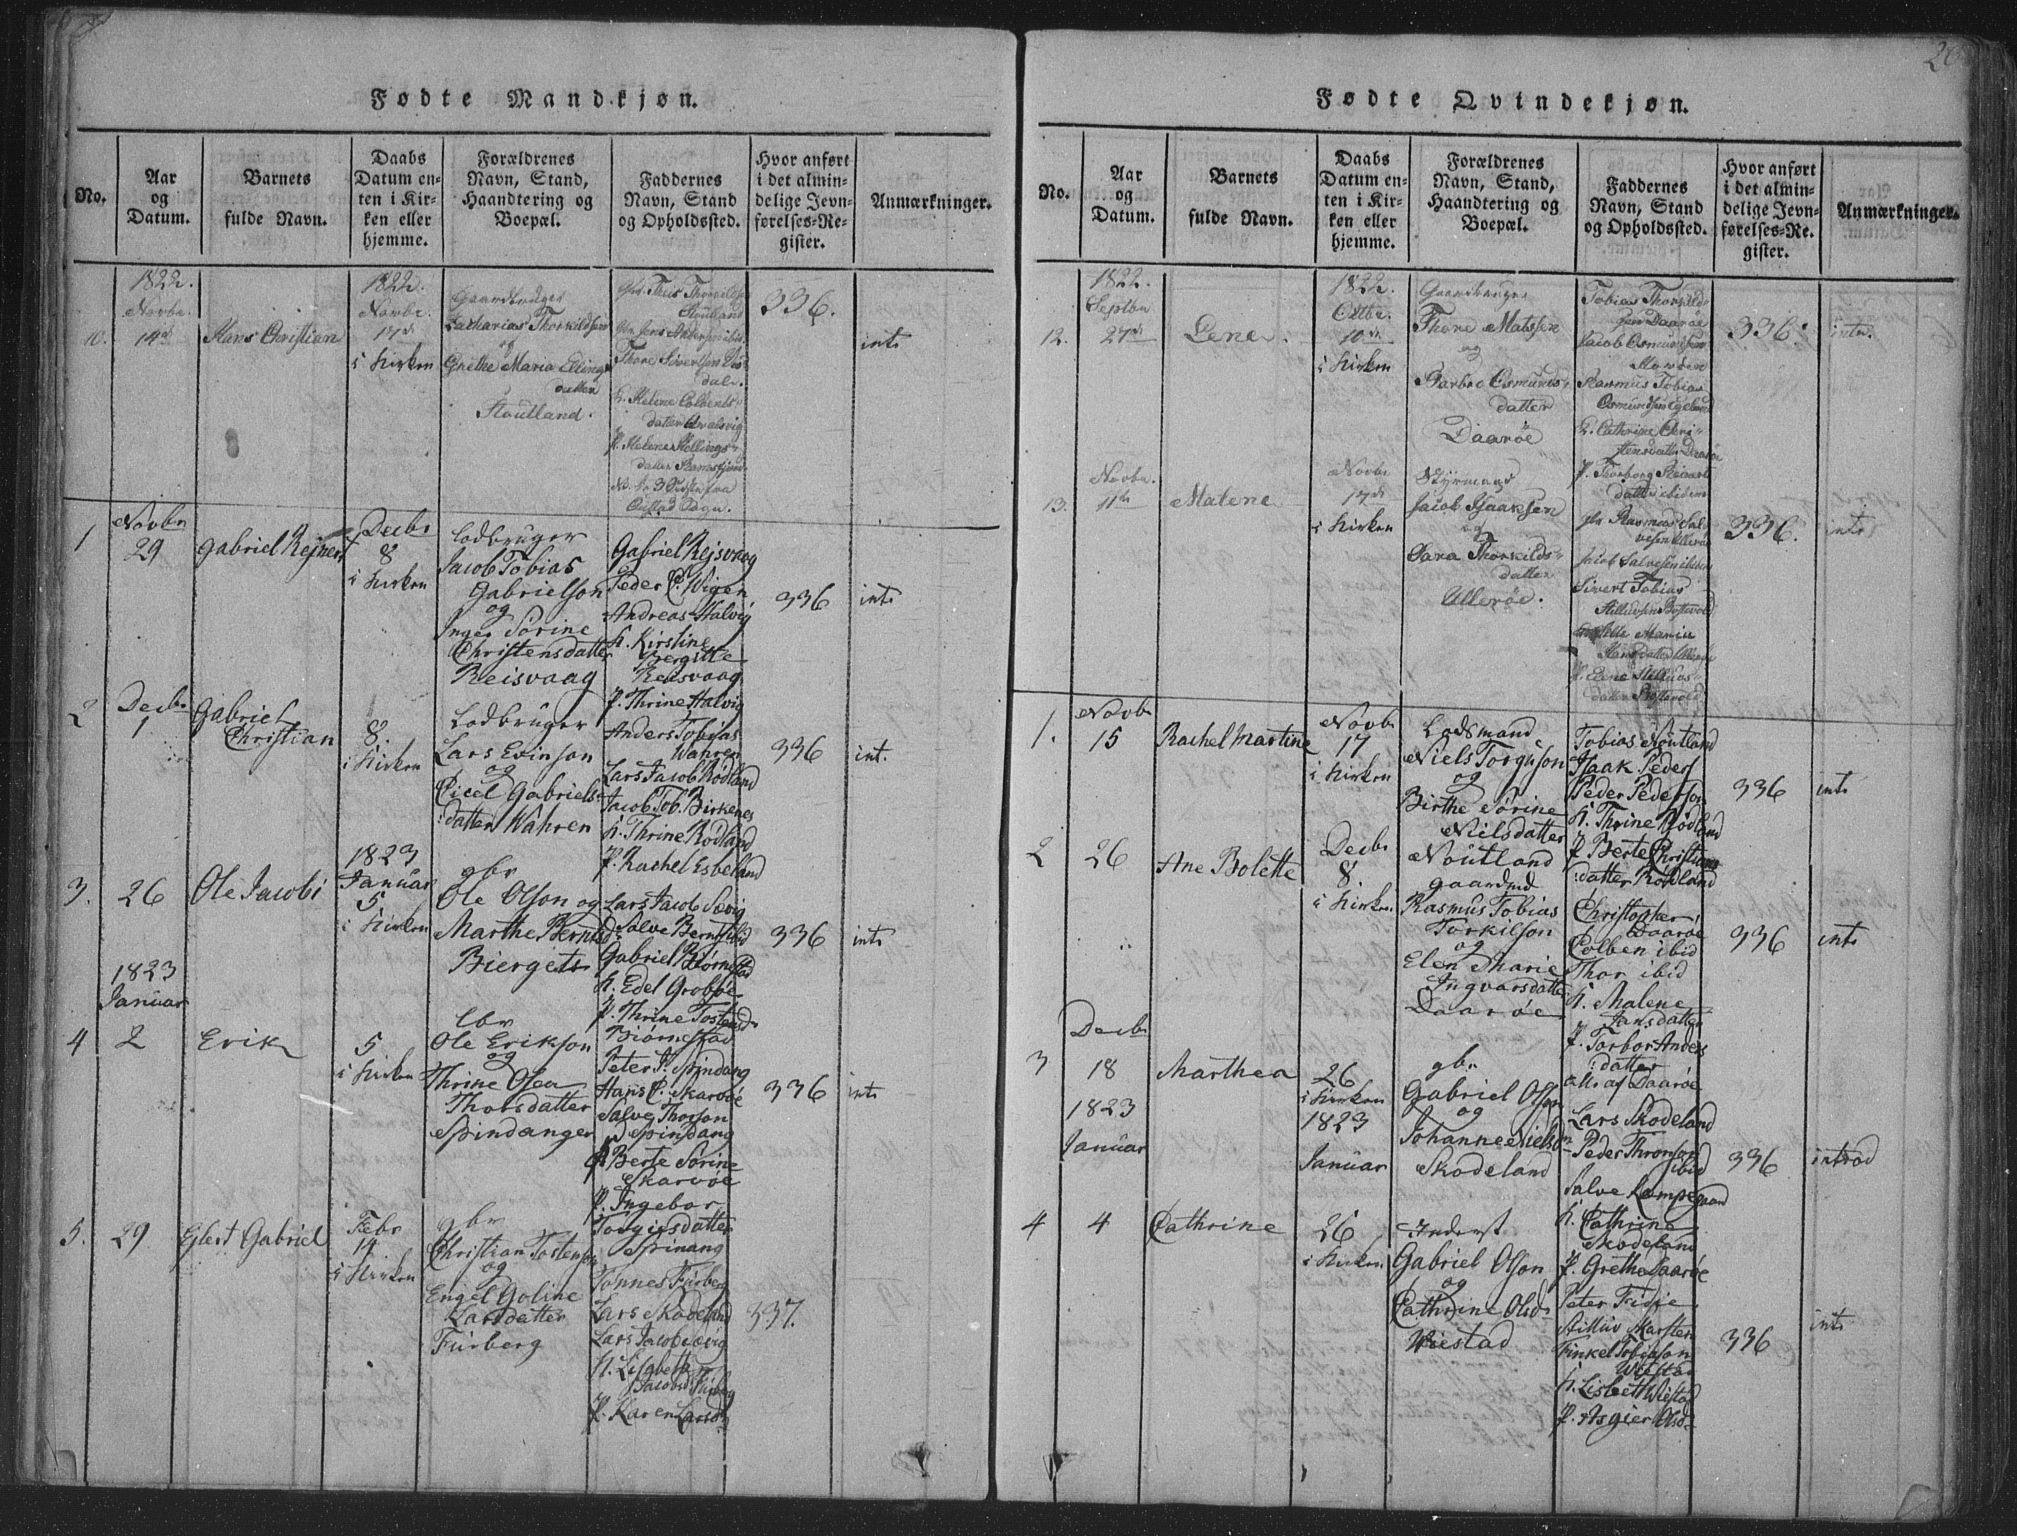 Fødte Mandkjøn.
No.
Aar
og
Datum.
Barnets
fulde Navn.
Daabs
Datum en-
ten i Kir-
ken eller
hjemme.
Forældrenes
Navn, Stand,
Haandtering og
Boepæl.
Faddernes
Navn, Stand
og Opholdssted.
Hvor anført
i det almin-
delige Jevn-
førelses-Re-
gister.
Anmærkninger.
10.
1822.
Novbr.
14de
Hans Christian
1822.
Novbr.
17de
i Kirken
Gaardbruger
Zacharias Thorkildsen
og
Grethe Maria Ellings
datter
Stoutland.
Stoutland
Thore Sivertsen
dal.
datter
datter
336.
int.
1
Novbr
29
Gabriel Rejner
Decbr
8
i Kirken
Lodbruger
Jacob Tobias
Gabrielson
og
Inger Sorine
Christensdatter
Reisvaag
Gabriel Rejsvaag
Peder C. Wigen
Andreas Halvig
K. Kirstine
Bergitte
Reisvaag
P. Thrine Halvig
336
int.
2
Decbr
1
Gabriel
Christian
8.
i Kirken
Lodbruger
Lars Evinson
og
Cicel Gabriels-
datter Wahren
Anders Tobias
Wahren
Lars Jacob Rødland
Jacob Tob. Birkenes
K. Thrine Rødland
P. Rachel Esbeland
336
int.
3.
26
Ole Jacobi
1823
Januar
5
i Kirken
gbr
Ole Olson og
Marthe Berntsd:
Biergets
Lars Jacob Sævig
Salve
Gabriel Biørnestad
K. Edel
P. Thrine Tostensd:
Biørnestad
336
int.
1823
Januar
4
2
Erik
5
i Kirken
Lbr
Ole Erikson
og
Thrine Olea
Thorsdatter
Spindanger
Peter J. Spindang
Hans C. Skarvøe
Salve Thorson
Spindang
K. Berte Sørine
Skarvøe
P. Ingebor
Torgiersdatter
Spinang
336
int.
5.
29
Ejlert Gabriel
Febr
14.
i Kirken
gbr
Christian Tostenson
og
Engel Goline
Larsdatter
Furberg
Tønnes Furberg
Lars Skodeland
Lars Jacob Sævig
K. Lisabeth
Jacobsd. Furberg
P. Karen Larsd:
337.
Fødte Qvindekjøn.
No.
Aar
og
Datum.
Barnets
fulde Navn.
Daabs
Datum en-
ten i Kir-
ken eller
hjemme.
Forældrenes
Navn, Stand,
Haandtering og
Boepæl.
Faddernes
Navn, Stand
og Opholdssted.
Hvor anført
i det almin-
delige Jevn-
førelses-Re-
gister.
Anmærkninger.
12.
1822.
Septbr
27de
Lene.
1822.
Octbr.
10de
i Kirken
Gaardbruger
Thore Matssen
og
Barbro Osmunds-
datter
Daarøe
Tobias Thorkild-
sen Daarøe
Jacob Osmundsen
Rasmus Tobias
Osmundsen
K. Cathrine Chri-
stensdatter Daarøe
P. Torborg
datter ibidem
336.
intr.
13.
Novbr.
11te
Malene
Novbr
17de
i Kirken
Styrmand
Jacob Isaaksen
og
Sara Thorkilds-
datter
Ullerøe.
gbr Rasmus Sal-
vesen Ullerøe
Jacob Salvesen ibidem
Sivert Tobias
336.
intr
1.
Novbr
15
Rachel Martine
Novbr
17
i Kirken
Lodsmand
Niels Torguson
og
Birthe Sørine
Nielsdatter
Noutland
Tobias Noutland
Isaak Peders
Peder Pederson
K. Thrine Rødland
P. Berte Christians
datter Rødland
336
int.
2
26
Ane Bolette
Decbr
8.
i Kirken
gaardmd
Rasmus Tobias
Torkilson
og
Elen Marie
Ingvarsdatter
Daarøe
Christopher
Daarøe
Colben ibid
Thor ibid
K. Malene
Jansdatter
P. Torbor Anders
datter
alle af Daarøe
336
int.
3
Decbr
18
Marthea
26
i Kirken
gbr
Gabriel Olson
og
Johanne Nielsd:
Skodeland
Lars Skodeland
Peder Thronson
ibid
Salve
K. Cathrine
Skodeland
P. Grethe Daarøe
336
introd
1823
Januar
4
4
Cathrine
1823
Januar
26
i Kirken
Inderst
Gabriel Olson
og
Cathrine Olsd:
Wiestad
Peter Fidie
Finkel Tobiason
Wiestad
K. Lisbeth Wiestad
P. Asgier Olsd:
336
int.